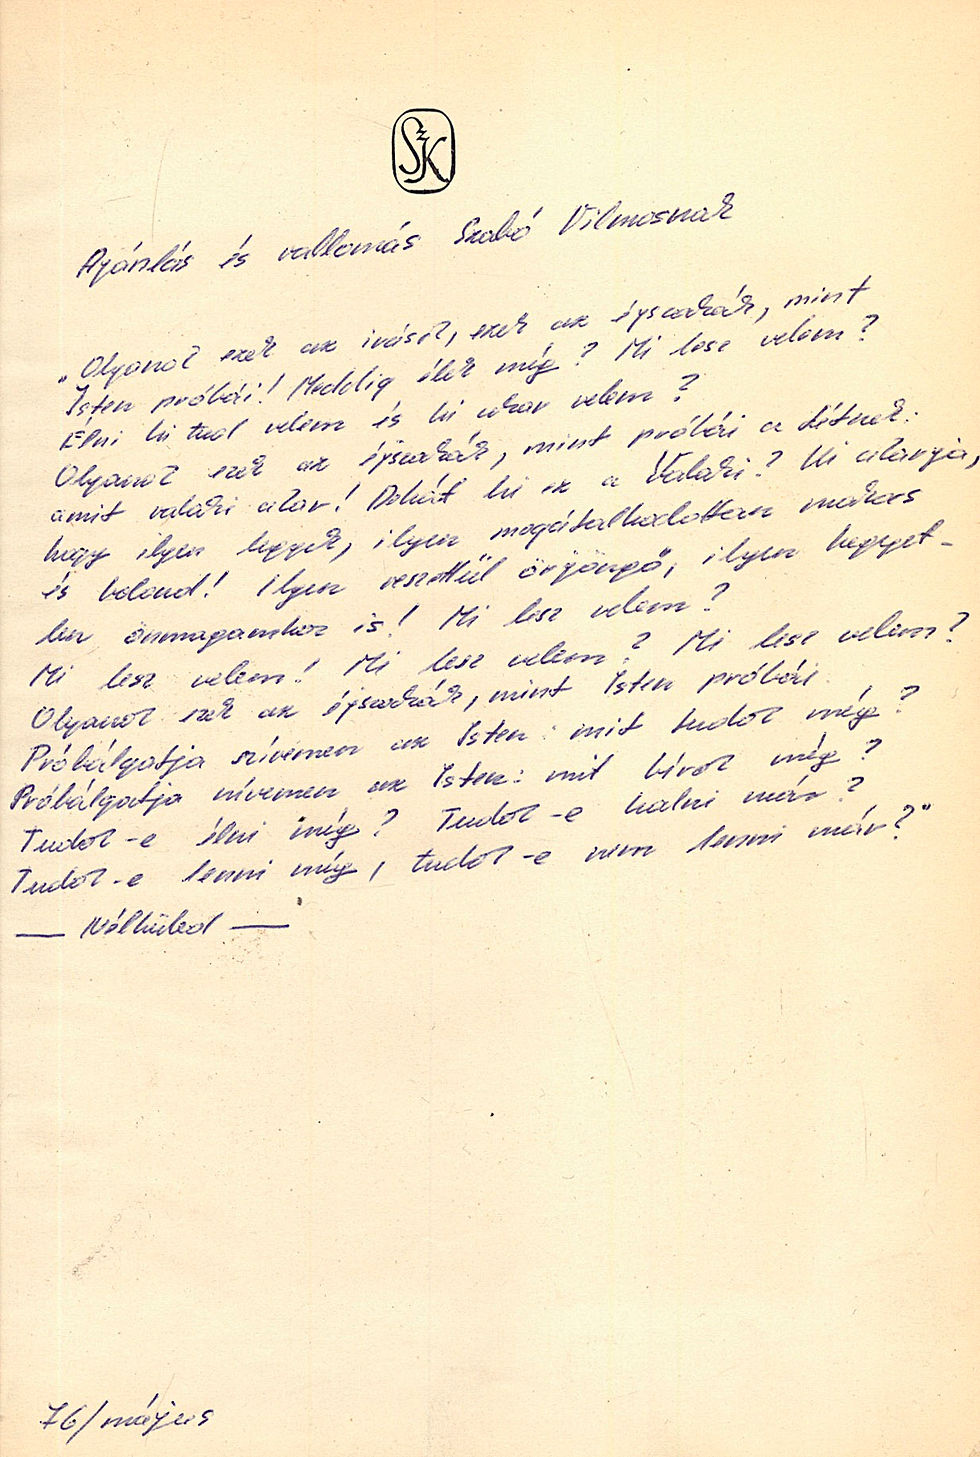 SzK
Ajánlás és vallomás Szabó Vilmosnak
„Olyanok ezek az írások, ezek az éjszakák, mint
Isten próbái! Meddig élek még? Mi lesz velem?
Élni ki tud velem és ki akar velem?
Olyanok ezek az éjszakák, mint próbái a Létnek:
amit valaki akar! Dehát ki ez a Valaki? Ki akarja,
hogy ilyen legyek, ilyen megátalkodottan makacs
és bolond! Ilyen veszettül örjöngő, ilyen kegyet-
len önmagamhoz is! Mi lesz velem?
Mi lesz velem! Mi lesz velem? Mi lesz velem?
Olyanok ezek az éjszakák, mint Isten próbái.
Próbálgatja szívemen az Isten: mit tudok még?
Próbálgatja szívemen az Isten: mit bírok még?
Tudok-e élni még? Tudok-e halni már?
Tudok-e lenni még, tudok-e nem lenni már?"
— Nélküled —
76/május